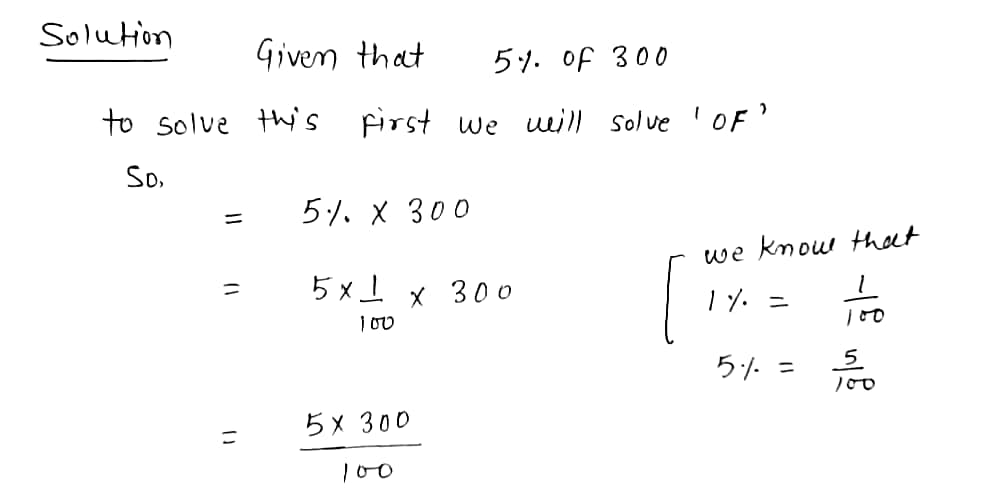 Solution
Given that 5% of 300
to solve this first we will solve 'OF'
So,
= 5% x 300
= 5 x 1/100 x 300
[ we know that
1% = 1/100
5% = 5/100
= 5 x 300 / 100